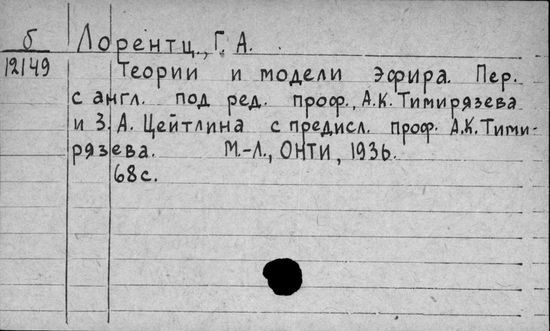 б Лорентц, Г. А.
12149 Теории и модели эфира. Пер.
с англ. под ред. проф., А.К. Тимирязева
и З. А. Цейтлина с предисл. проф. А.К. Тими-
рязева. М.-Л., ОНТИ, 1936.
68 с.